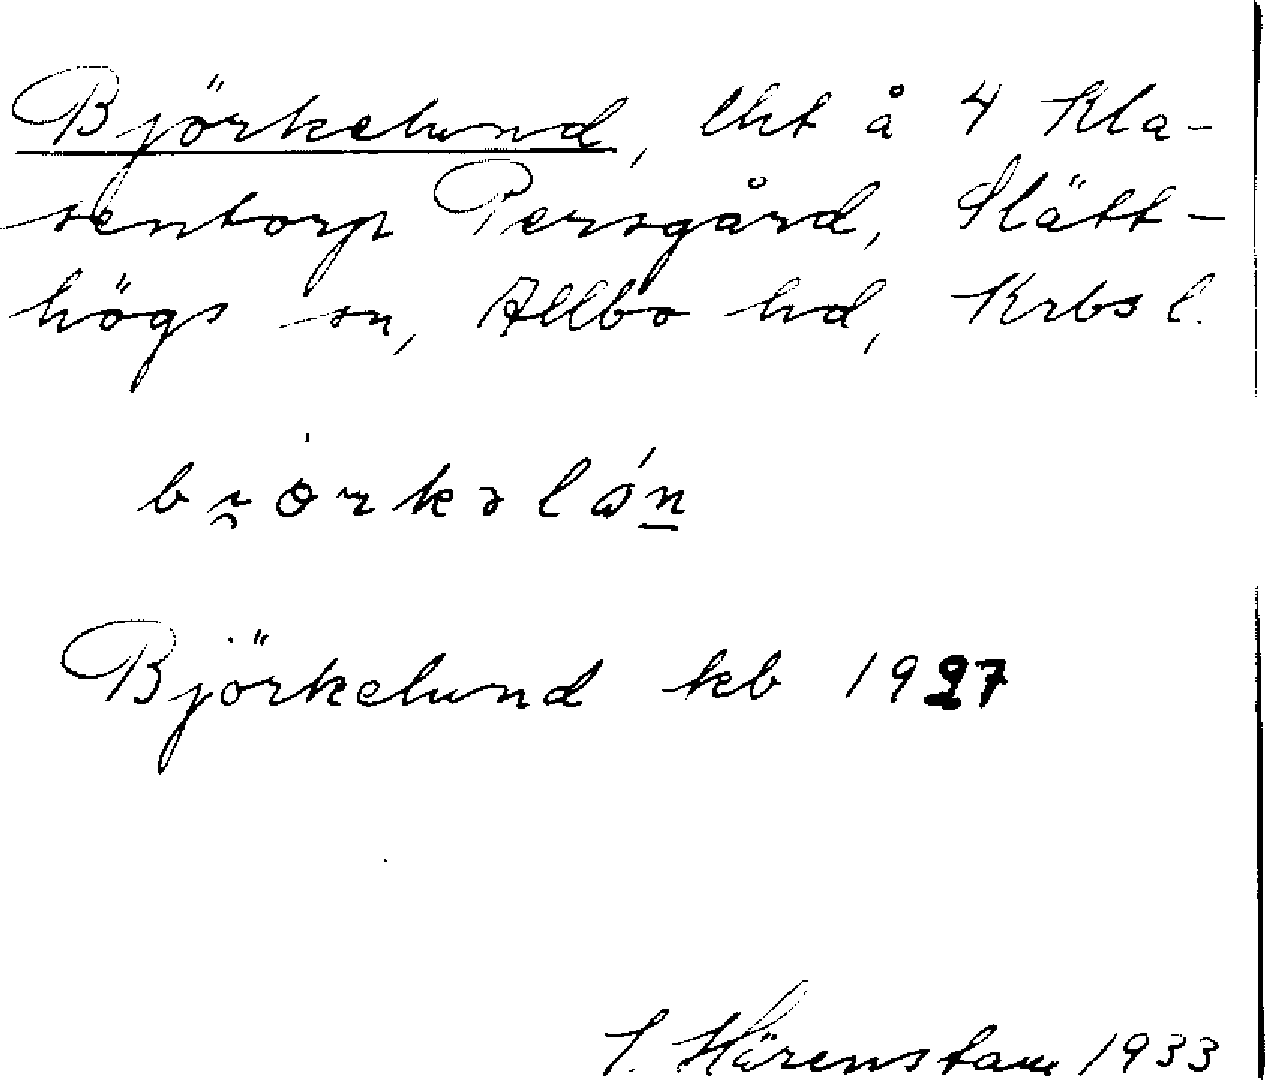 Björkelund, lht å 4 Kla-
sentorp Persgård, Slätt-
högs sn, Allbo hd, Krbs l.
Björkelund kb 1927
S. Härenstam 1933